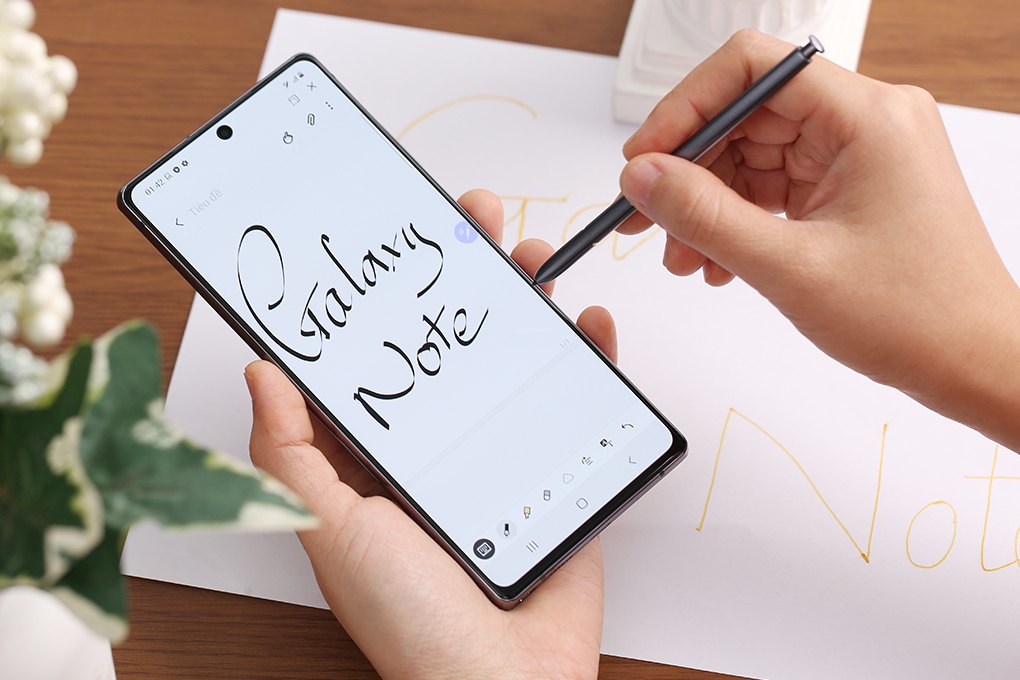 01:42
Tiêu đề
Galaxy
Note
1/1
Ga
Not